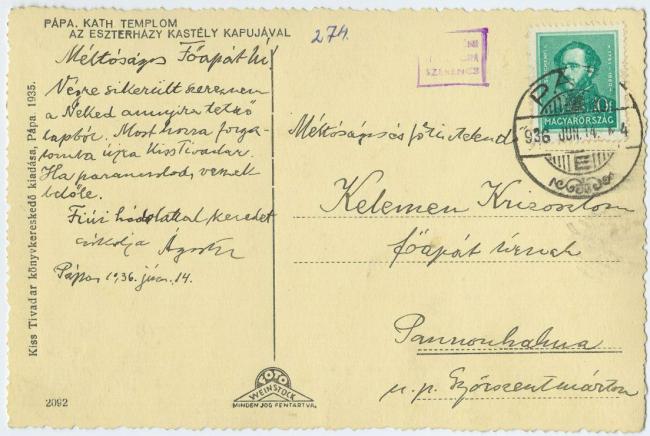 PÁPA. KATH. TEMPLOM
AZ ESZTERHÁZY KASTÉLY KAPUJÁVAL
274.
SZERENCS
MAGYARORSZÁG
936 JUN. 14.
E
Méltóságos Főapát Úr!
Végre sikerült szereznem
a Néked annyira tetsző
lapból. Most hozza forga-
lomba újra Kiss Tivadar.
Ha parancsolod, veszek
belőle.
Fiúi hódolattal kezedet
csókolja Ágoston
Pápa 1936. jún. 14.
Méltóságos és főtisztelendő
Kelemen Krizosztom
főapát Úrnak
Pannonhalma
u. p. Győrszentmárton
Kiss Tivadar könyvkereskedő kiadása, Pápa. 1935.
2092
FOTO
WEINSTOCK
MINDEN JOG FENTARTVA.